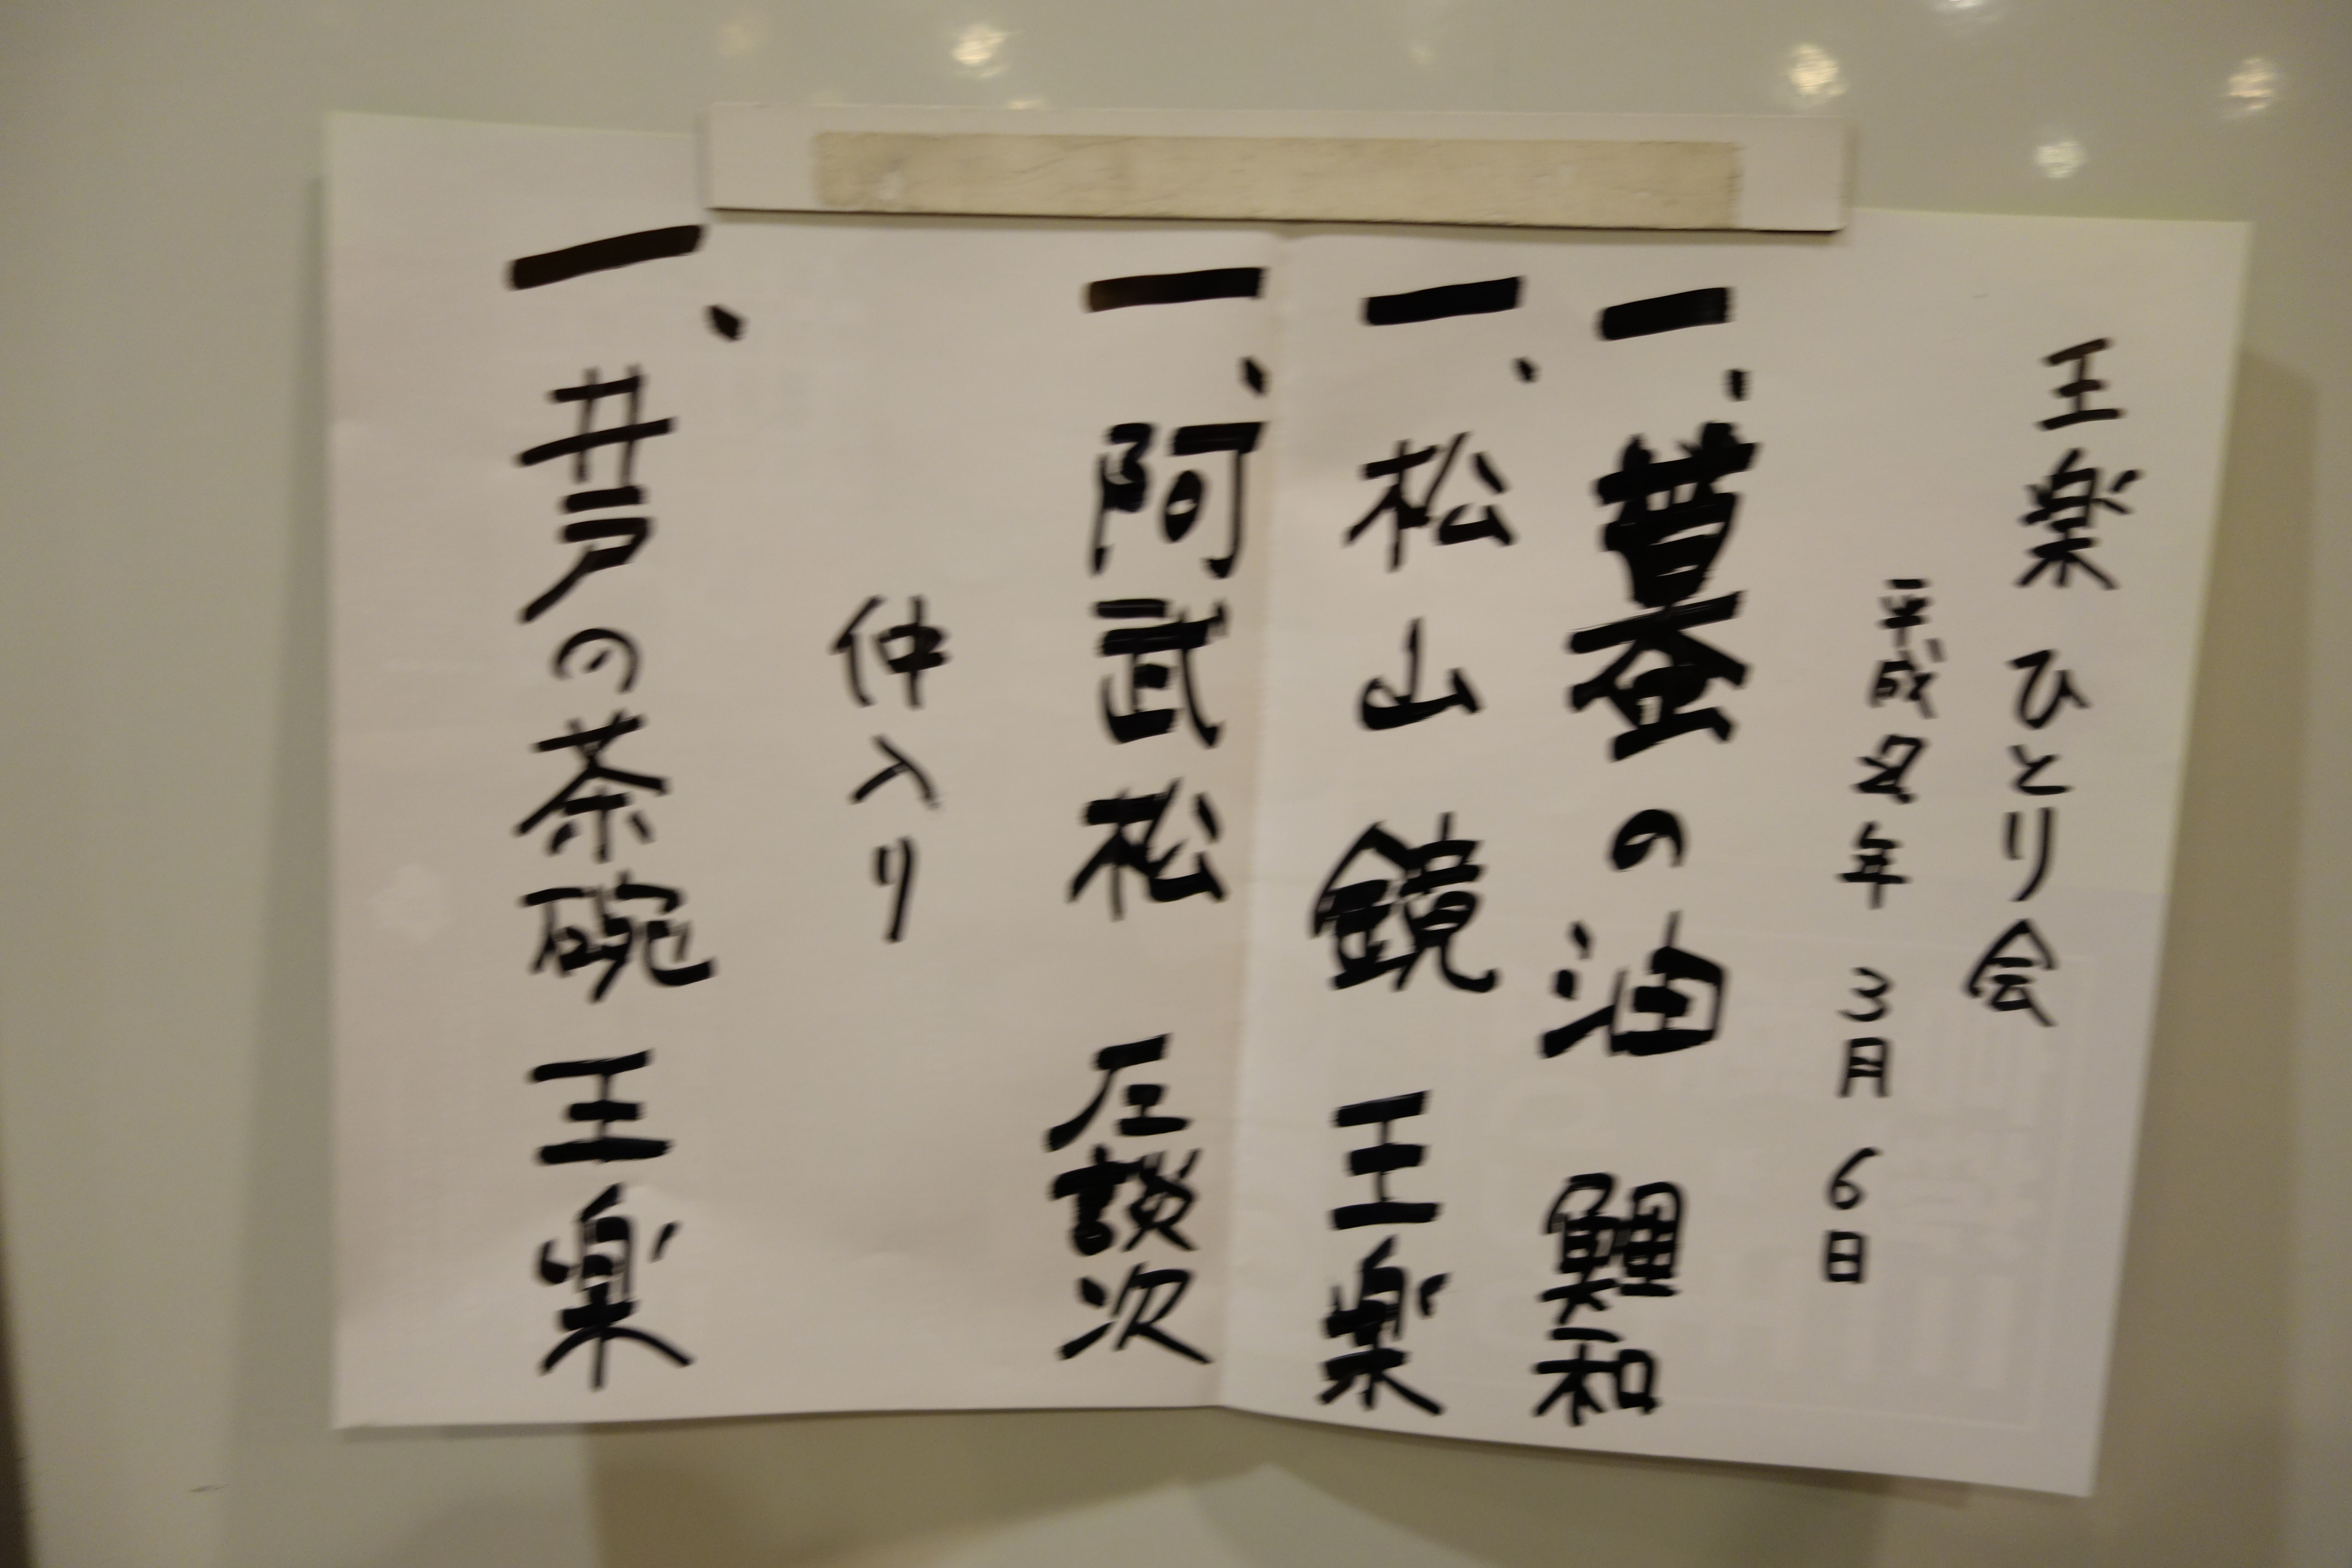 王楽 ひとり会
平成 年 3月 6日
一、蟇の油 鯉和
一、松山鏡 王楽
一、阿武松 左談次
仲入り
一、井戸の茶碗 王楽